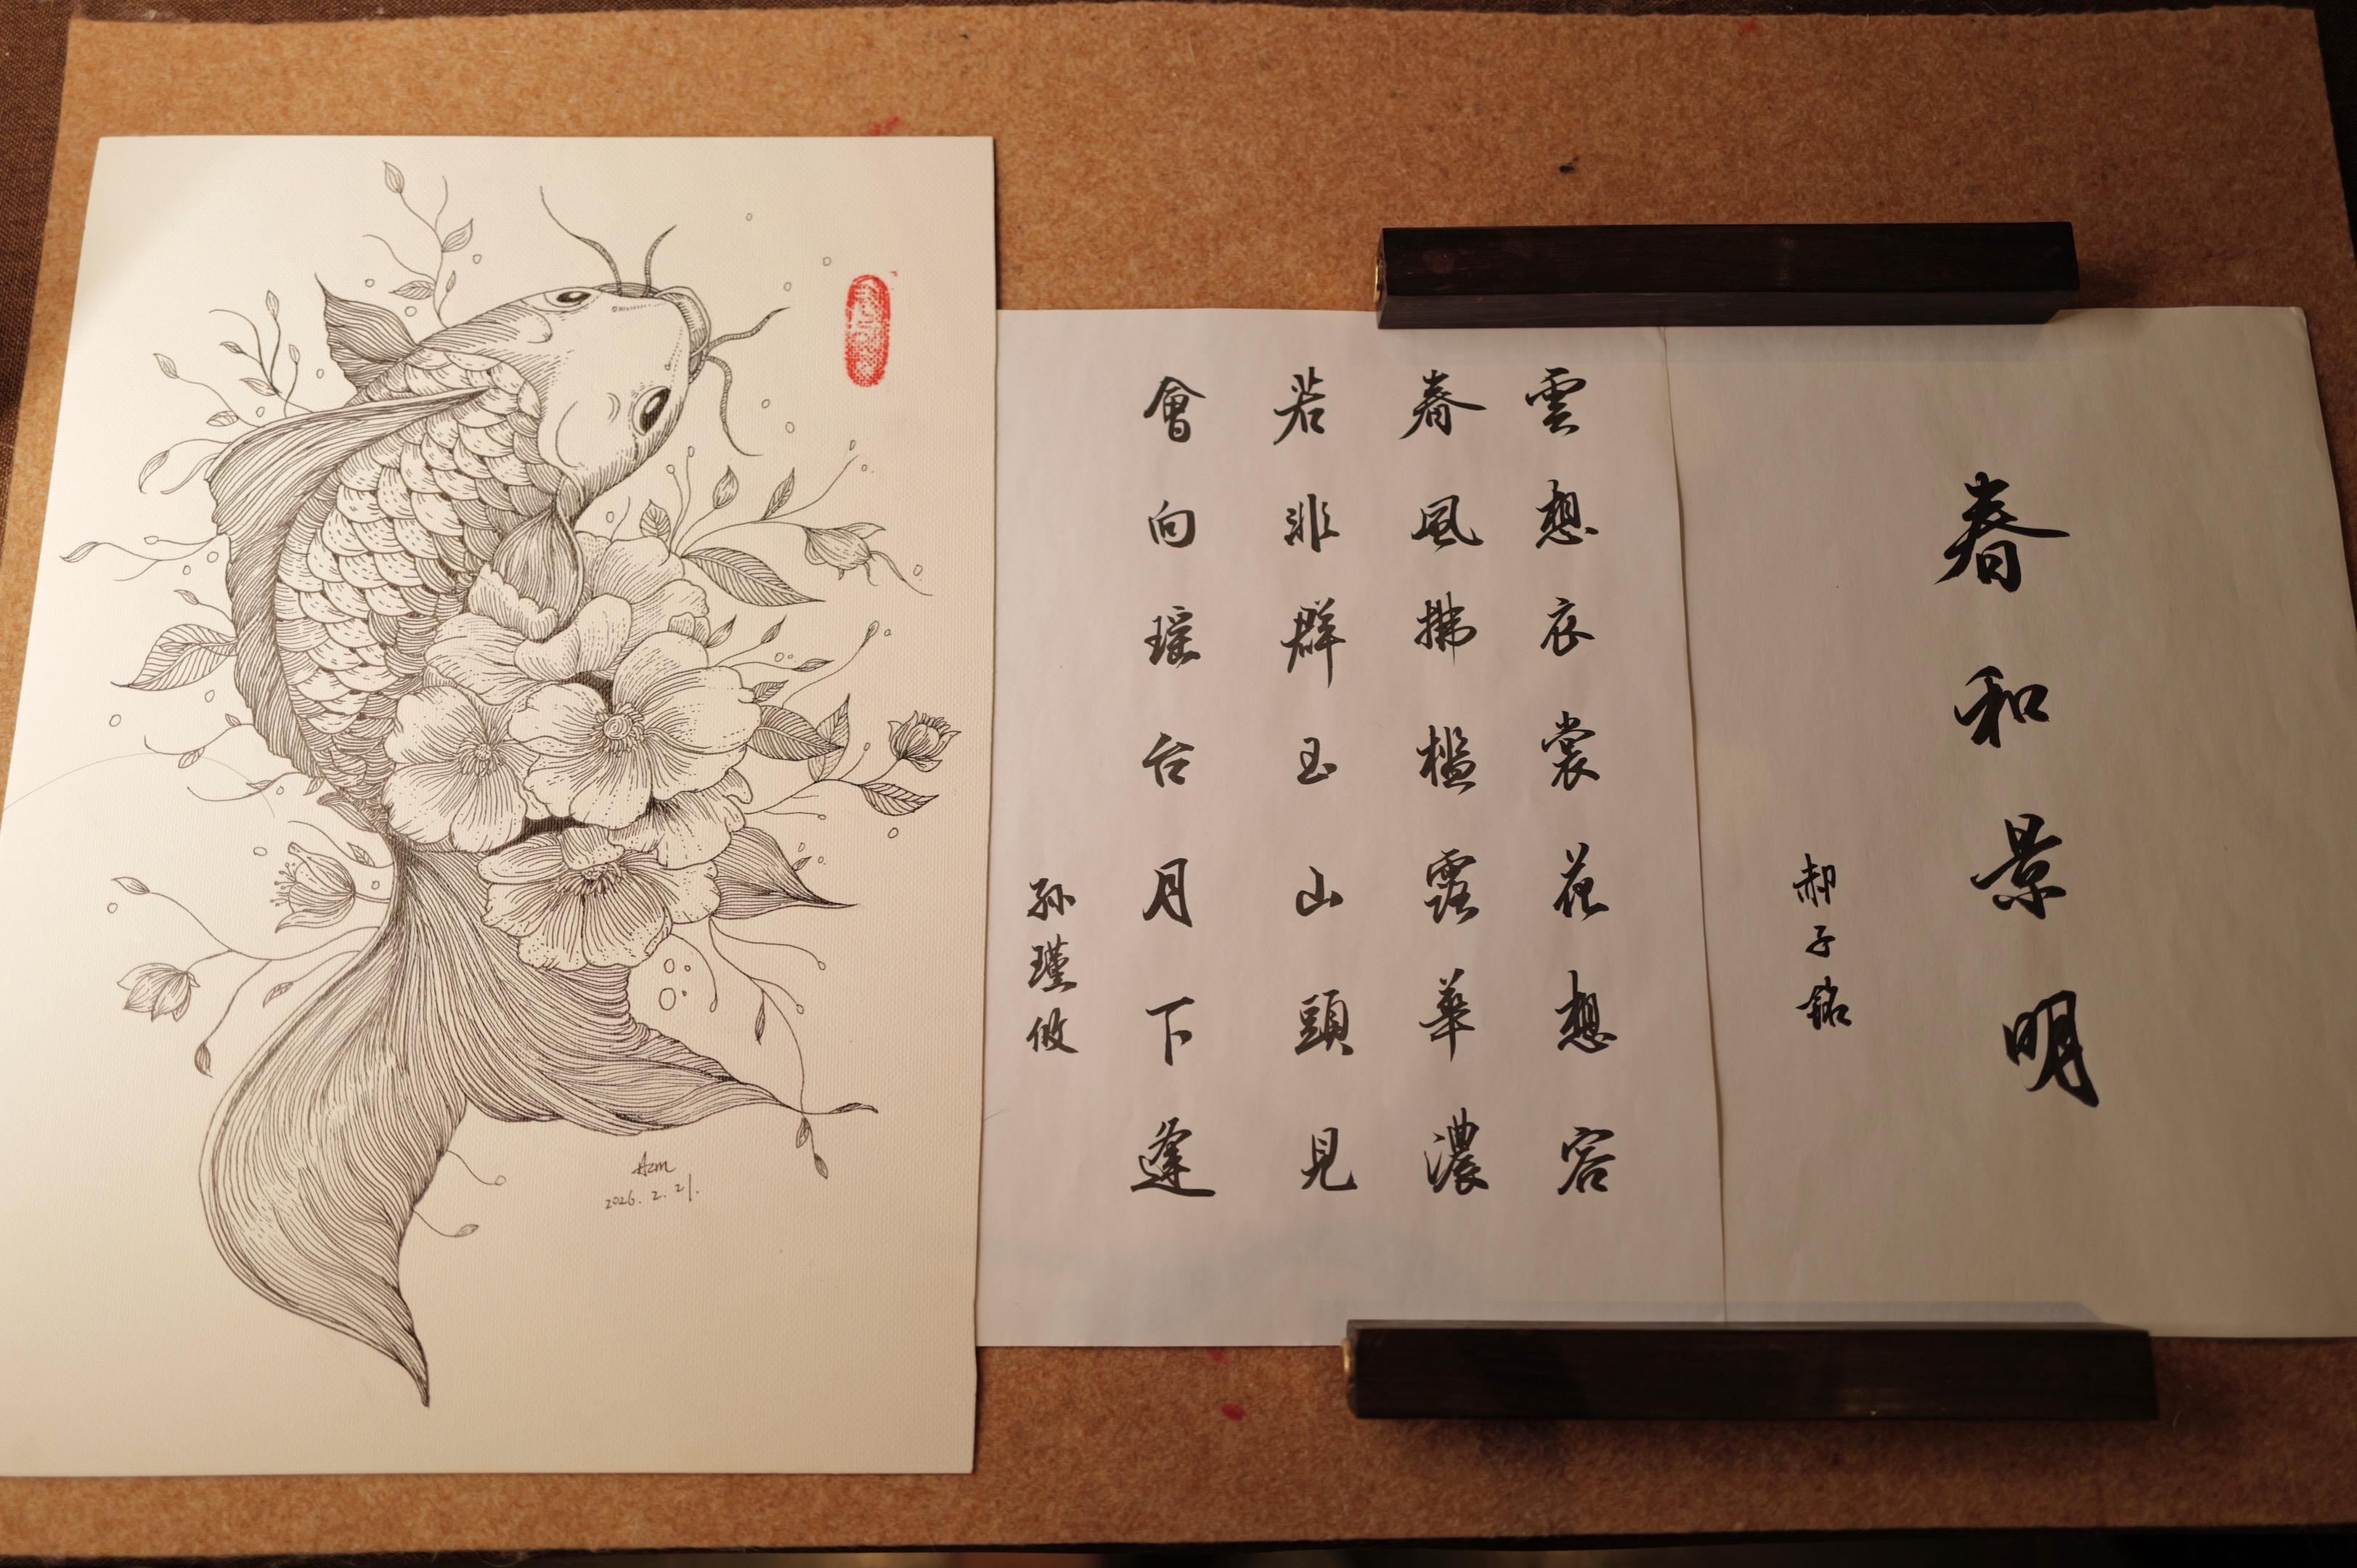 春和景明
郝子銘
雲想衣裳花想容
春風拂檻露華濃
若非群玉山頭見
會向瑶台月下逢
孙瑾攸
Azm
2026.2.21.